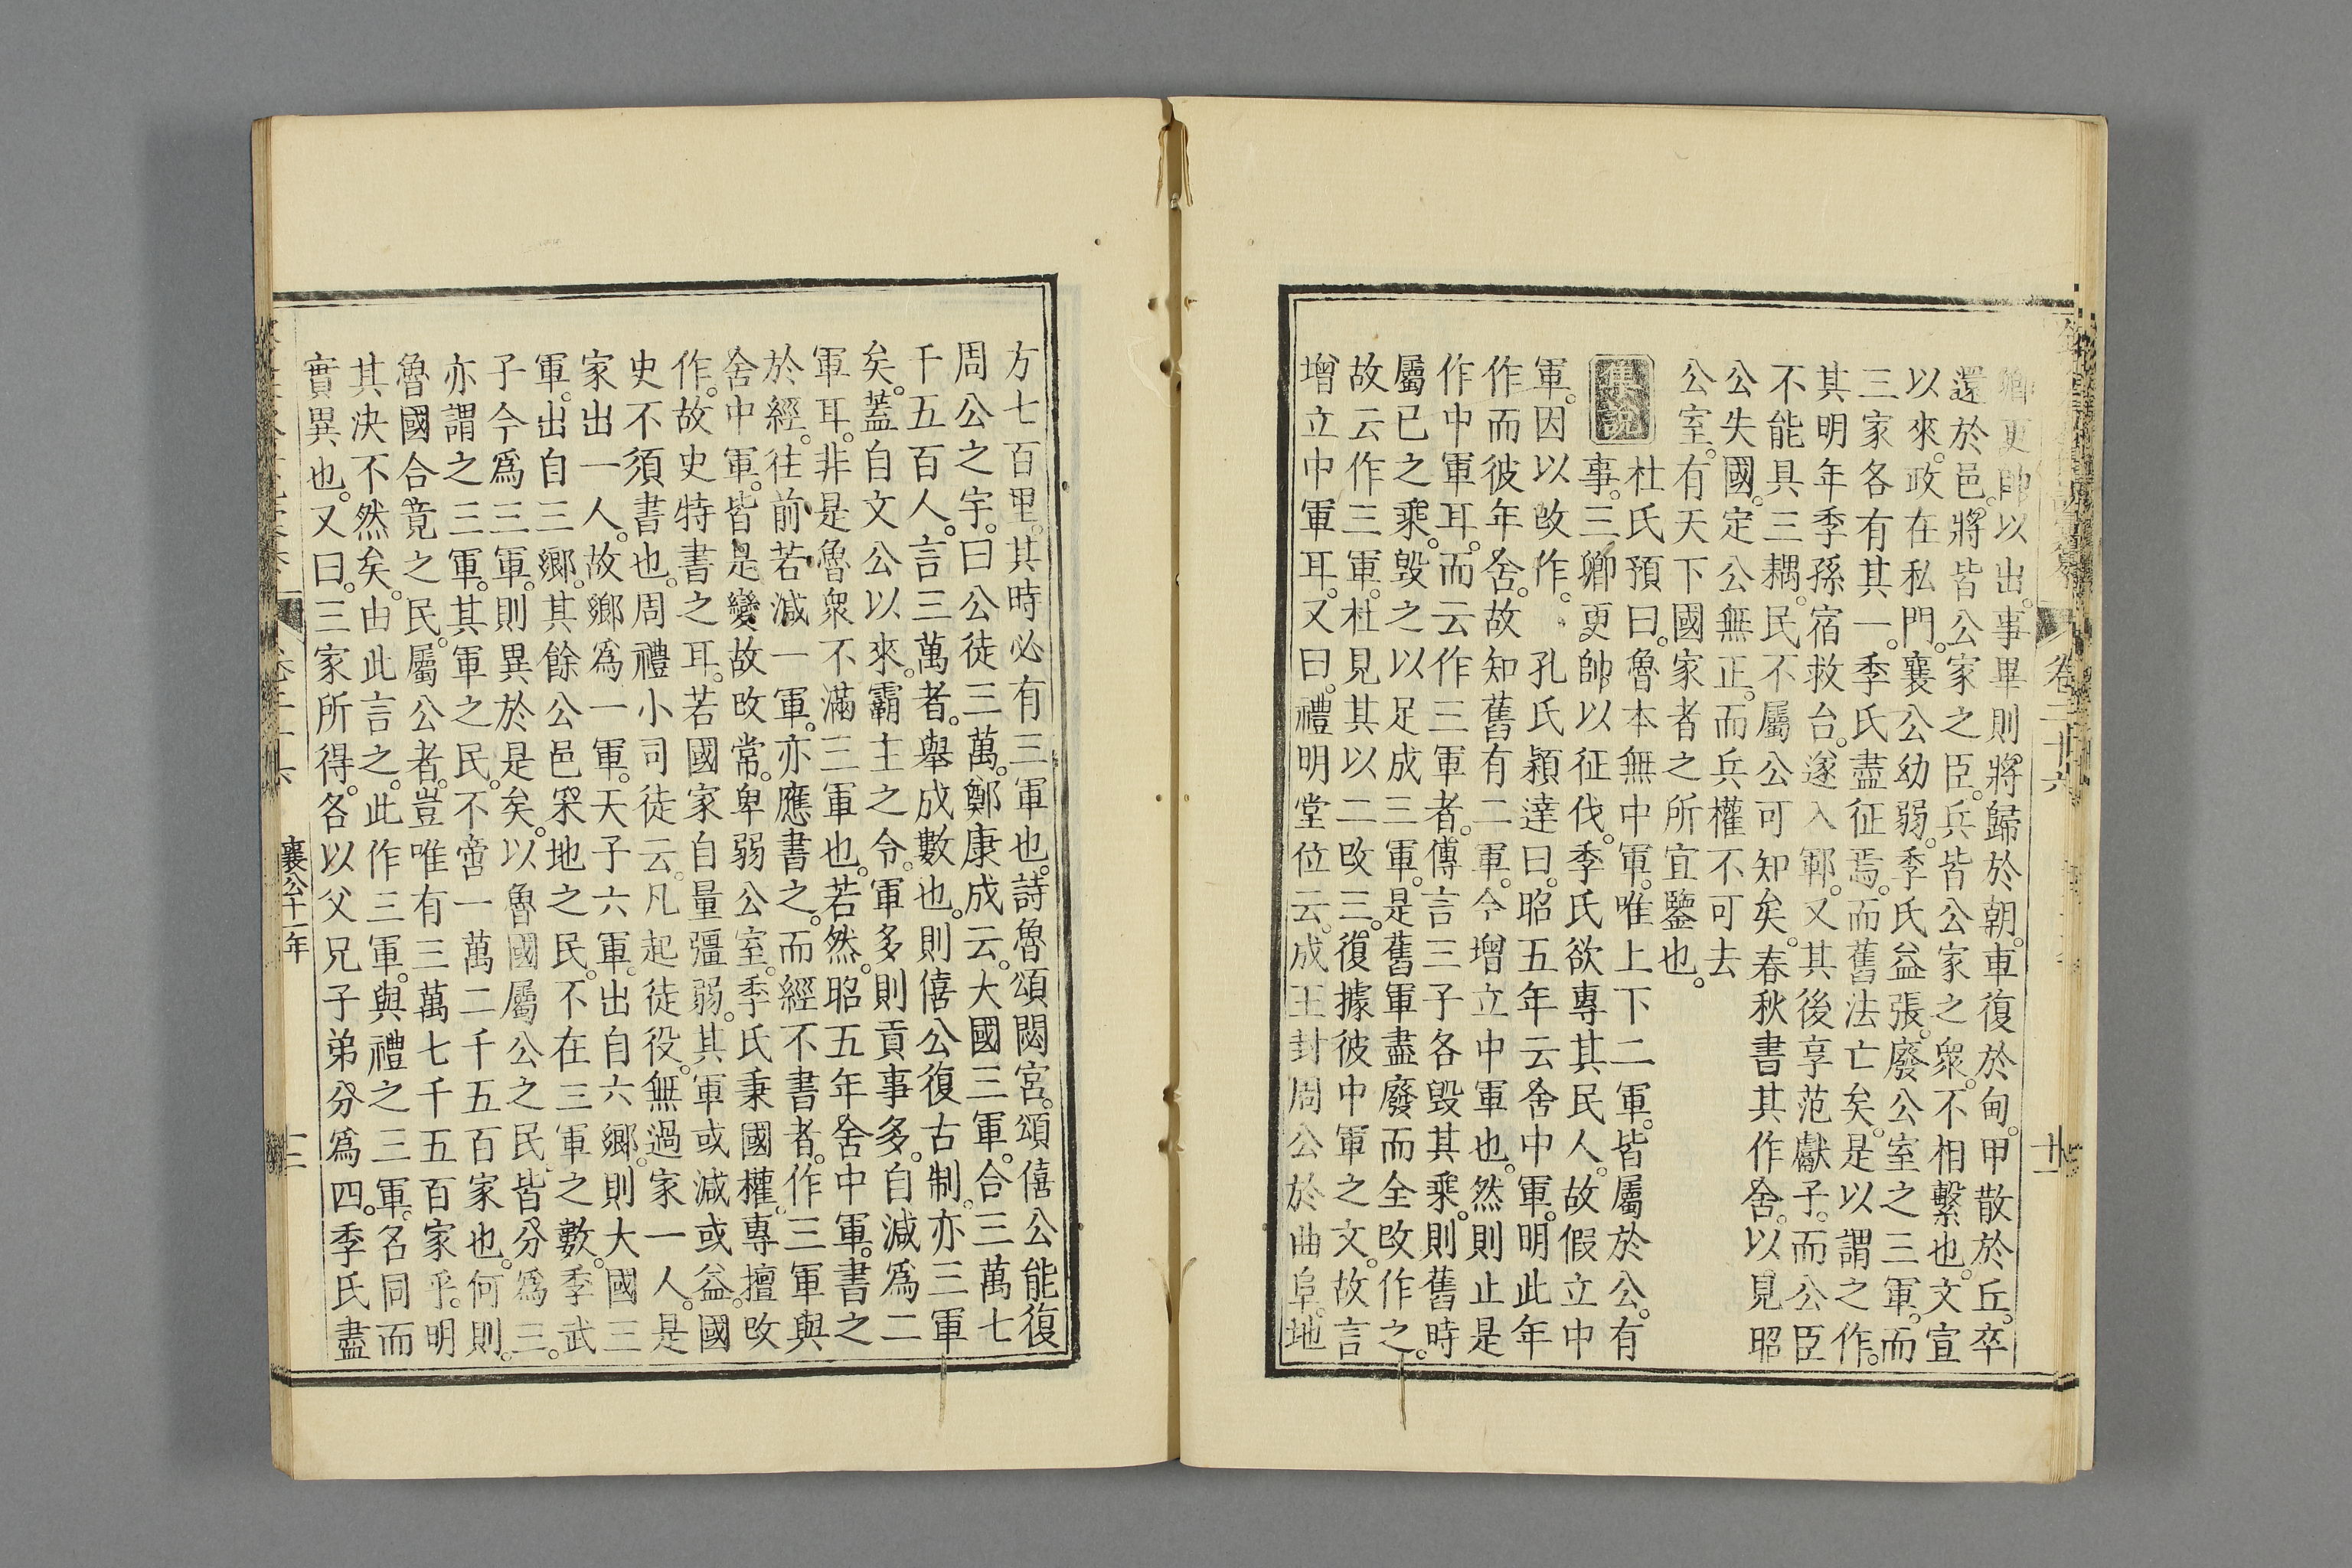 卿更帥以出。事畢則將歸於朝。車復於甸。甲散於丘。卒
還於邑。將皆公家之臣。兵皆公家之衆。不相繫也。文宣
以來。政在私門。襄公幼弱。季氏益張。廢公室之三軍。而
三家各有其一。季氏盡征焉。而舊法亡矣。是以謂之作。
其明年季孫宿救台。遂入鄆。又其後享范獻子。而公臣
不能具三耦。民不屬公可知矣。春秋書其作舍。以見昭
公失國。定公無正。而兵權不可去
公室。有天下國家者之所宜鑒也。
集說
杜氏預曰。魯本無中軍。唯上下二軍。皆屬於公。有
事。三卿更帥以征伐。季氏欲專其民人。故假立中
軍。因以改作。 孔氏穎達曰。昭五年云舍中軍。明此年
作而彼年舍。故知舊有二軍。今增立中軍也。然則止是
作中軍耳。而云作三軍者。傳言三子各毀其乘。則舊時
屬已之乘。毀之以足成三軍。是舊軍盡廢而全改作之。
故云作三軍。杜見其以二改三。復據彼中軍之文。故言
增立中軍耳。又曰。禮明堂位云。成王封周公於曲阜。地
卷三十六
廿一
方七百里。其時必有三軍也。詩魯頌閟宮。頌僖公能復
周公之宇。曰公徒三萬。鄭康成云。大國三軍。合三萬七
千五百人。言三萬者。舉成數也。則僖公復古制。亦三軍
矣。蓋自文公以來。霸主之令。軍多則貢事多。自減為二
軍耳。非是魯衆不滿三軍也。若然。昭五年舍中軍。書之
於經。往前若減一軍。亦應書之。而經不書者。作三軍與
舍中軍。皆是變故改常。卑弱公室。季氏秉國權。專擅改
作。故史特書之耳。若國家自量彊弱。其軍或減或益。國
史不須書也。周禮小司徒云。凡起徒役。無過家一人。是
家出一人。故鄉爲一軍。天子六軍。出自六鄉。則大國三
軍。出自三鄉。其餘公邑采地之民。不在三軍之數。季武
子今爲三軍。則異於是矣。以魯國屬公之民。皆分爲三。
亦謂之三軍。其軍之民。不啻一萬二千五百家也。何則。
魯國合竟之民。屬公者。豈唯有三萬七千五百家乎。明
其決不然矣。由此言之。此作三軍。與禮之三軍。名同而
實異也。又曰。三家所得。各以父兄子弟分爲四。季氏盡
襄公十一年